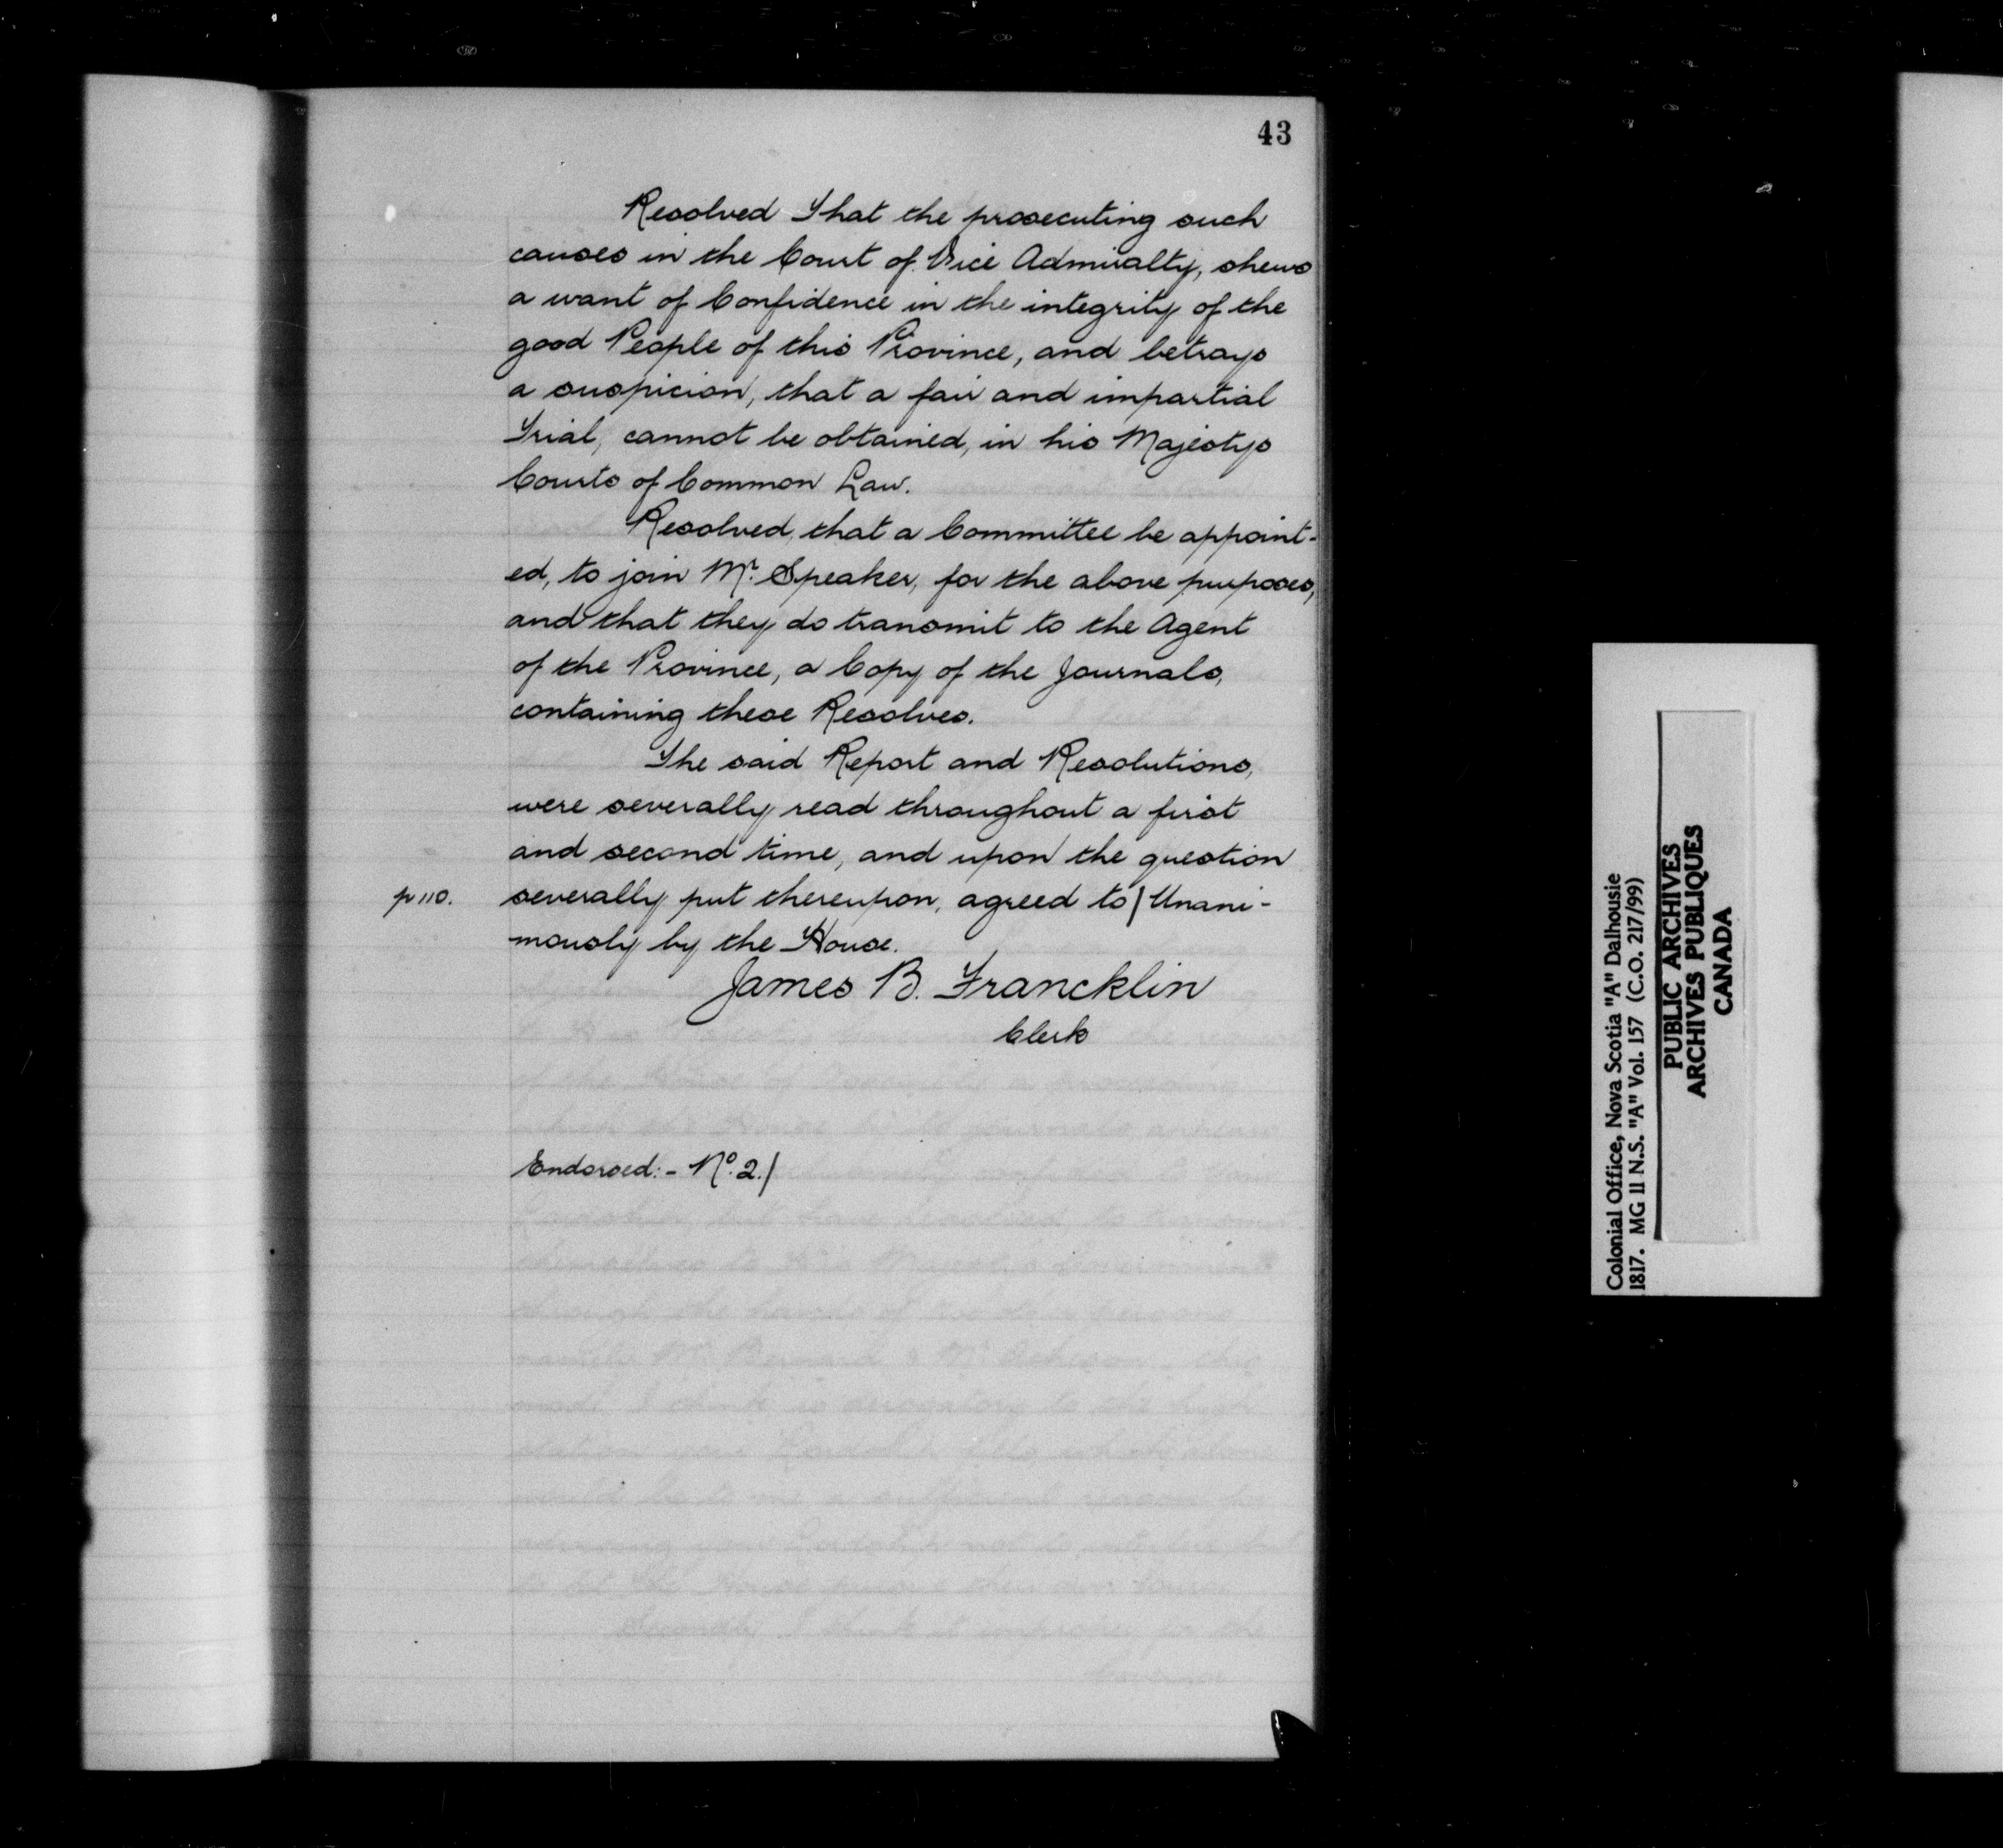 43
Resolved That the prosecuting such
causes in the Court of Vice Admiralty, shews
a want of Confidence in the integrity of the
good People of this Province, and betrays
a suspicion, that a fair and impartial
Trial, cannot be obtained, in his Majestys
Courts of Common Law.
Resolved, that a Committee be appoint-
ed, to join Mr. Speaker, for the above purposes,
and that they do transmit to the Agent
of the Province, a Copy of the Journals,
containing these Resolves.
The said Report and Resolutions,
were severally read throughout a first
and second time, and upon the question
p 110. severally put thereupon, agreed to / Unani-
mously by the House.
James B. Francklin
Clerk
Endorsed:- No. 2./
Colonial Office, Nova Scotia "A" Dalhousie
1817. MG 11 N.S. "A" Vol. 157 (C.O. 217/99)
PUBLIC ARCHIVES
ARCHIVES PUBLIQUES
CANADA